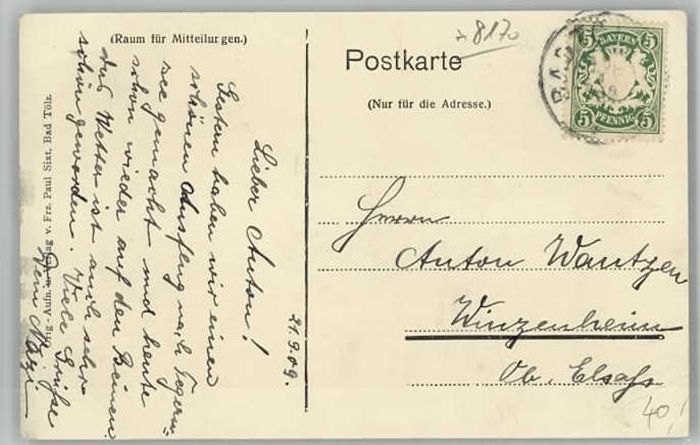 (Raum für Mitteilungen.)
21.9.09.
Lieber Anton!
Gestern haben wir einen
schönen Ausflug nach Tegern-
see gemacht und heute
schon wieder auf den Beinen
das Wetter ist auch sehr
schön geworden. Viele Grüße
Dein
Orig.-Aufn. u. Verlag v. Frz. Paul Sixt, Bad Tölz.
Postkarte
(Nur für die Adresse.)
8170
BAYERN
5 5
PFENNIG
5 5
BAD
Herrn
Anton Wantzen
Winzenheim
Ob. Elsaß
40,-